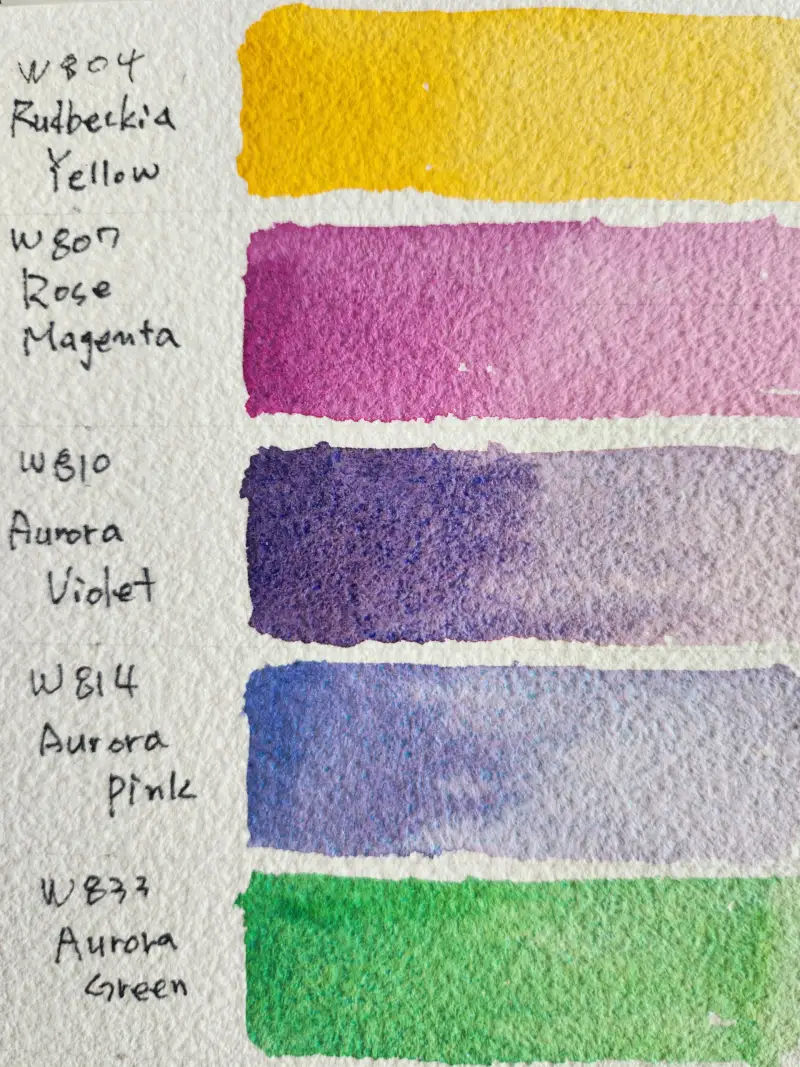 W804
Rudbeckia
Yellow
W807
Rose
Magenta
W810
Aurora
Violet
W814
Aurora
Pink
W833
Aurora
Green